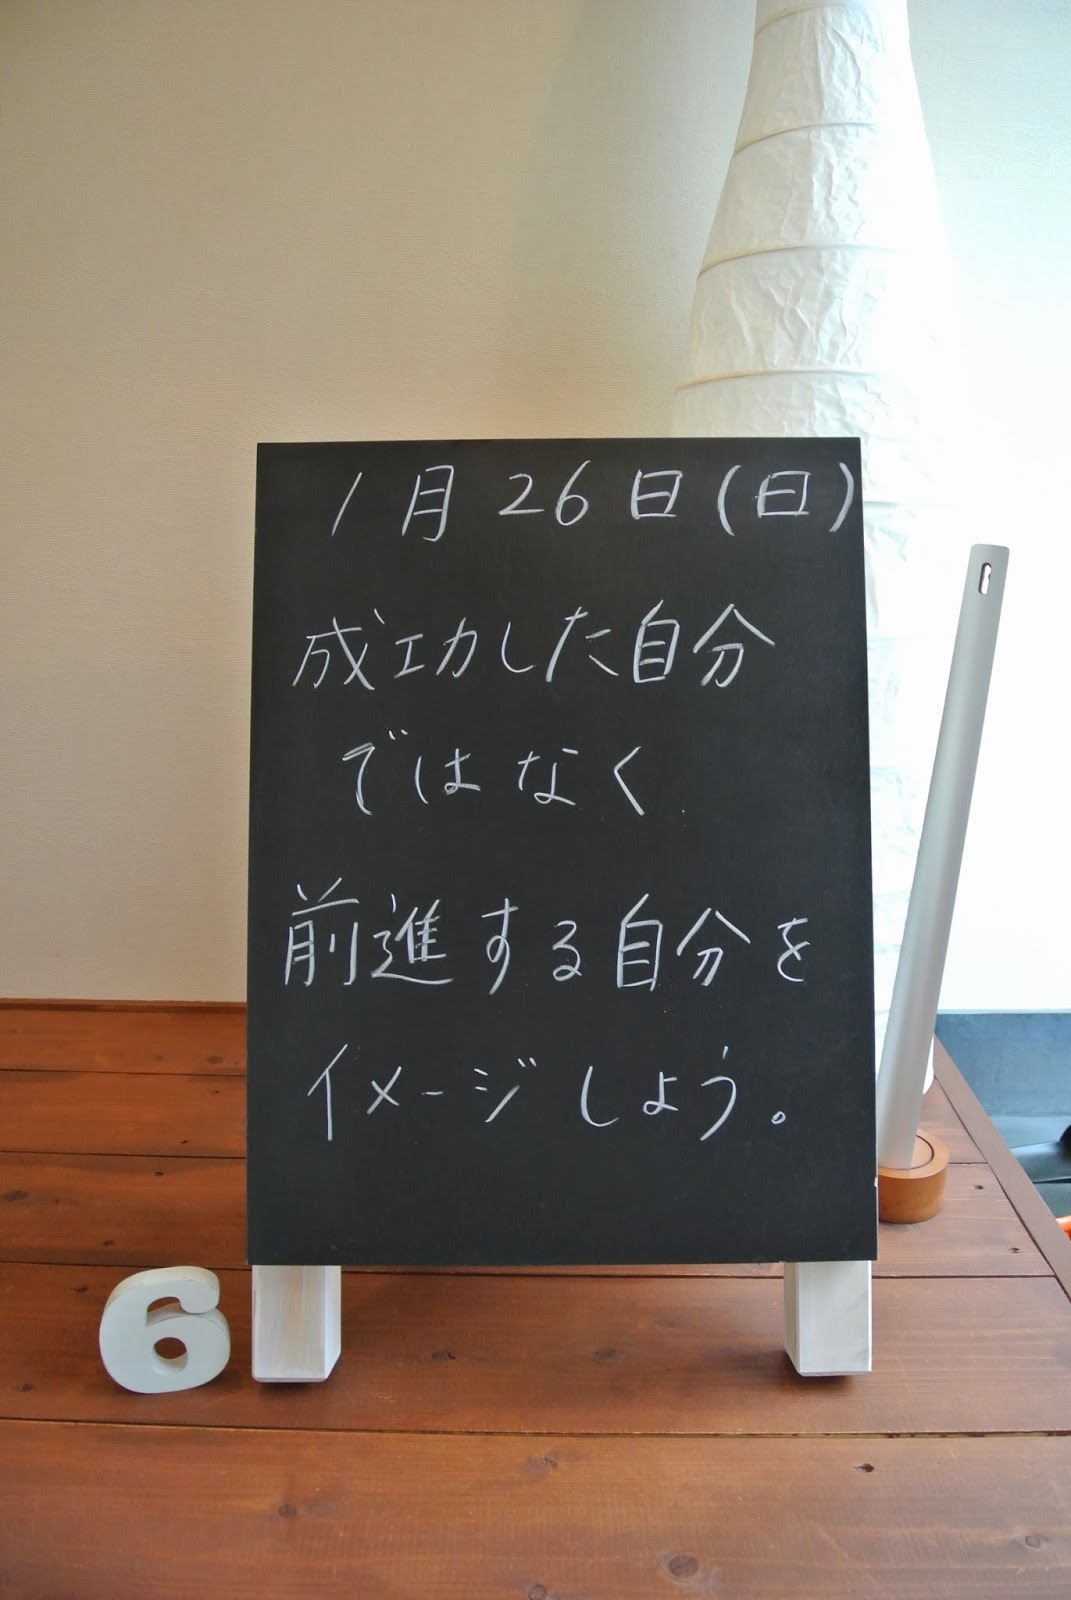 1月26日(日)
成功した自分
ではなく
前進する自分を
イメージしよう。
6